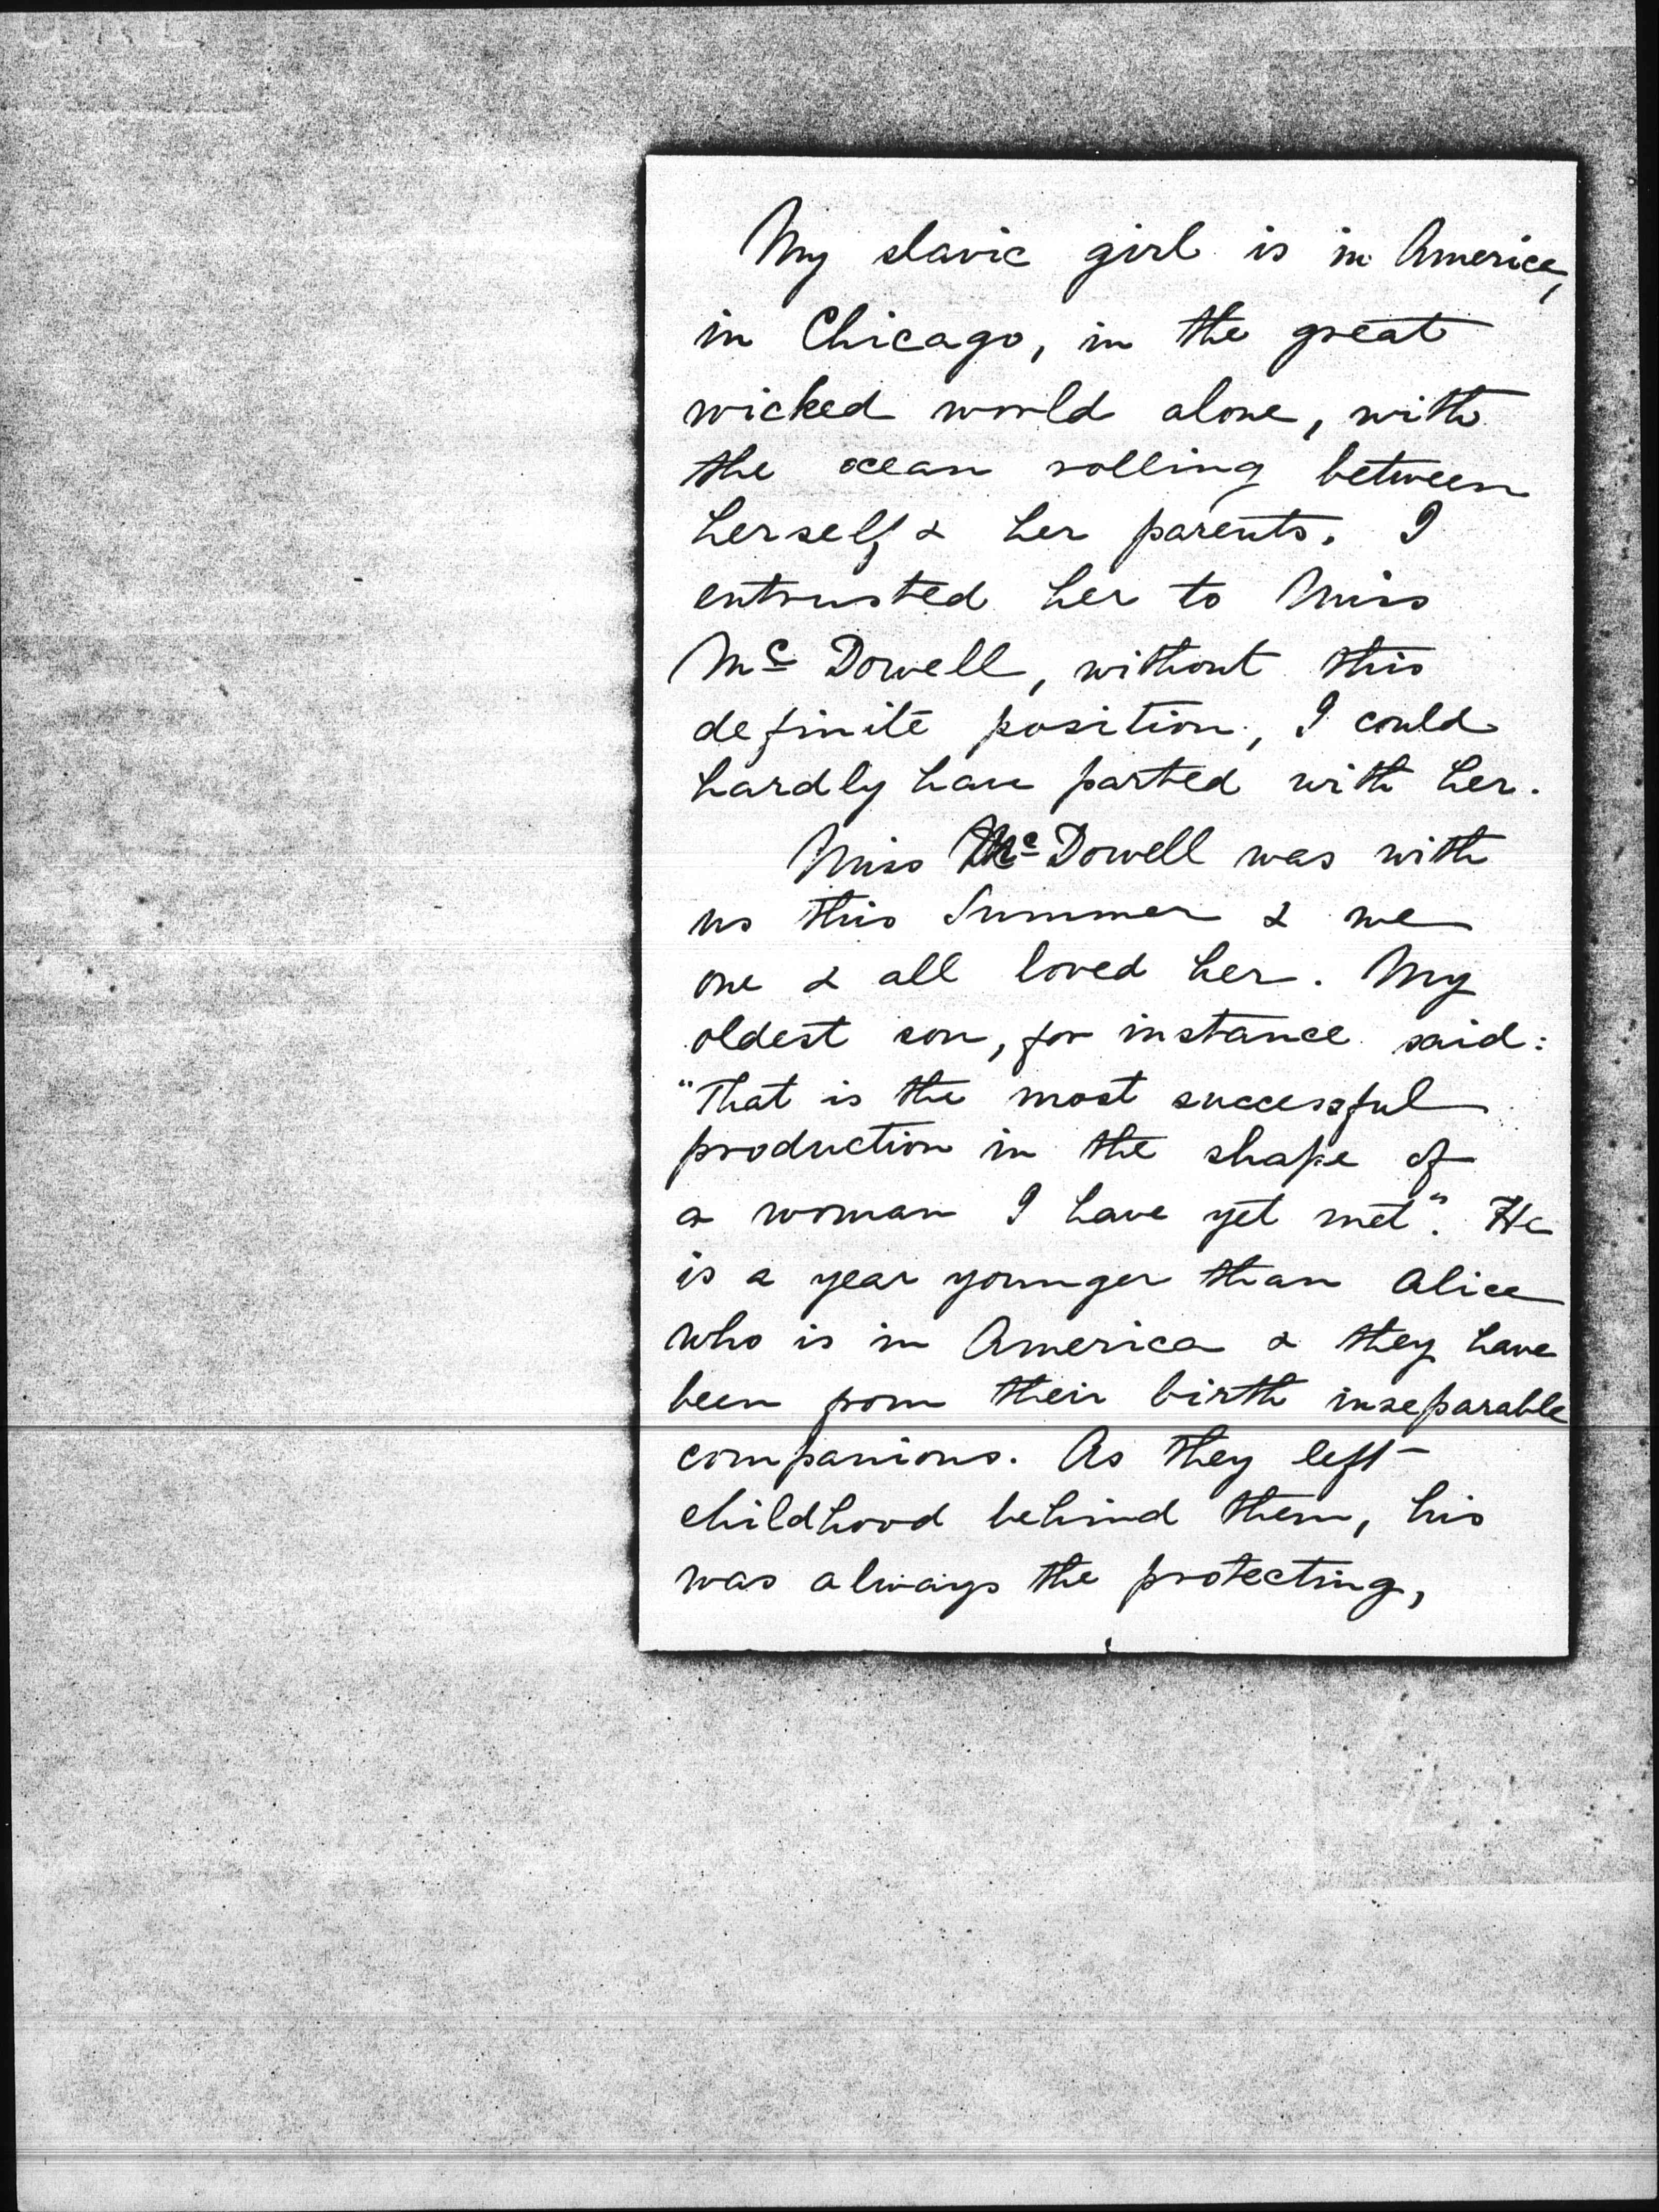 My slavic girl is in America,
in Chicago, in the great
wicked world alone, with
the ocean rolling between
herself & her parents. I
entrusted her to Miss
Mc Dowell, without this
definite position, I could
hardly have parted with her.
Miss McDowell was with
us this Summer & we
one & all loved her. My
oldest son, for instance said:
"That is the most successful
production in the shape of
a woman I have yet met". He
is a year younger than Alice
who is in America & they have
been from their birth inseparable
companions. As they left
childhood behind them, his
was always the protecting,